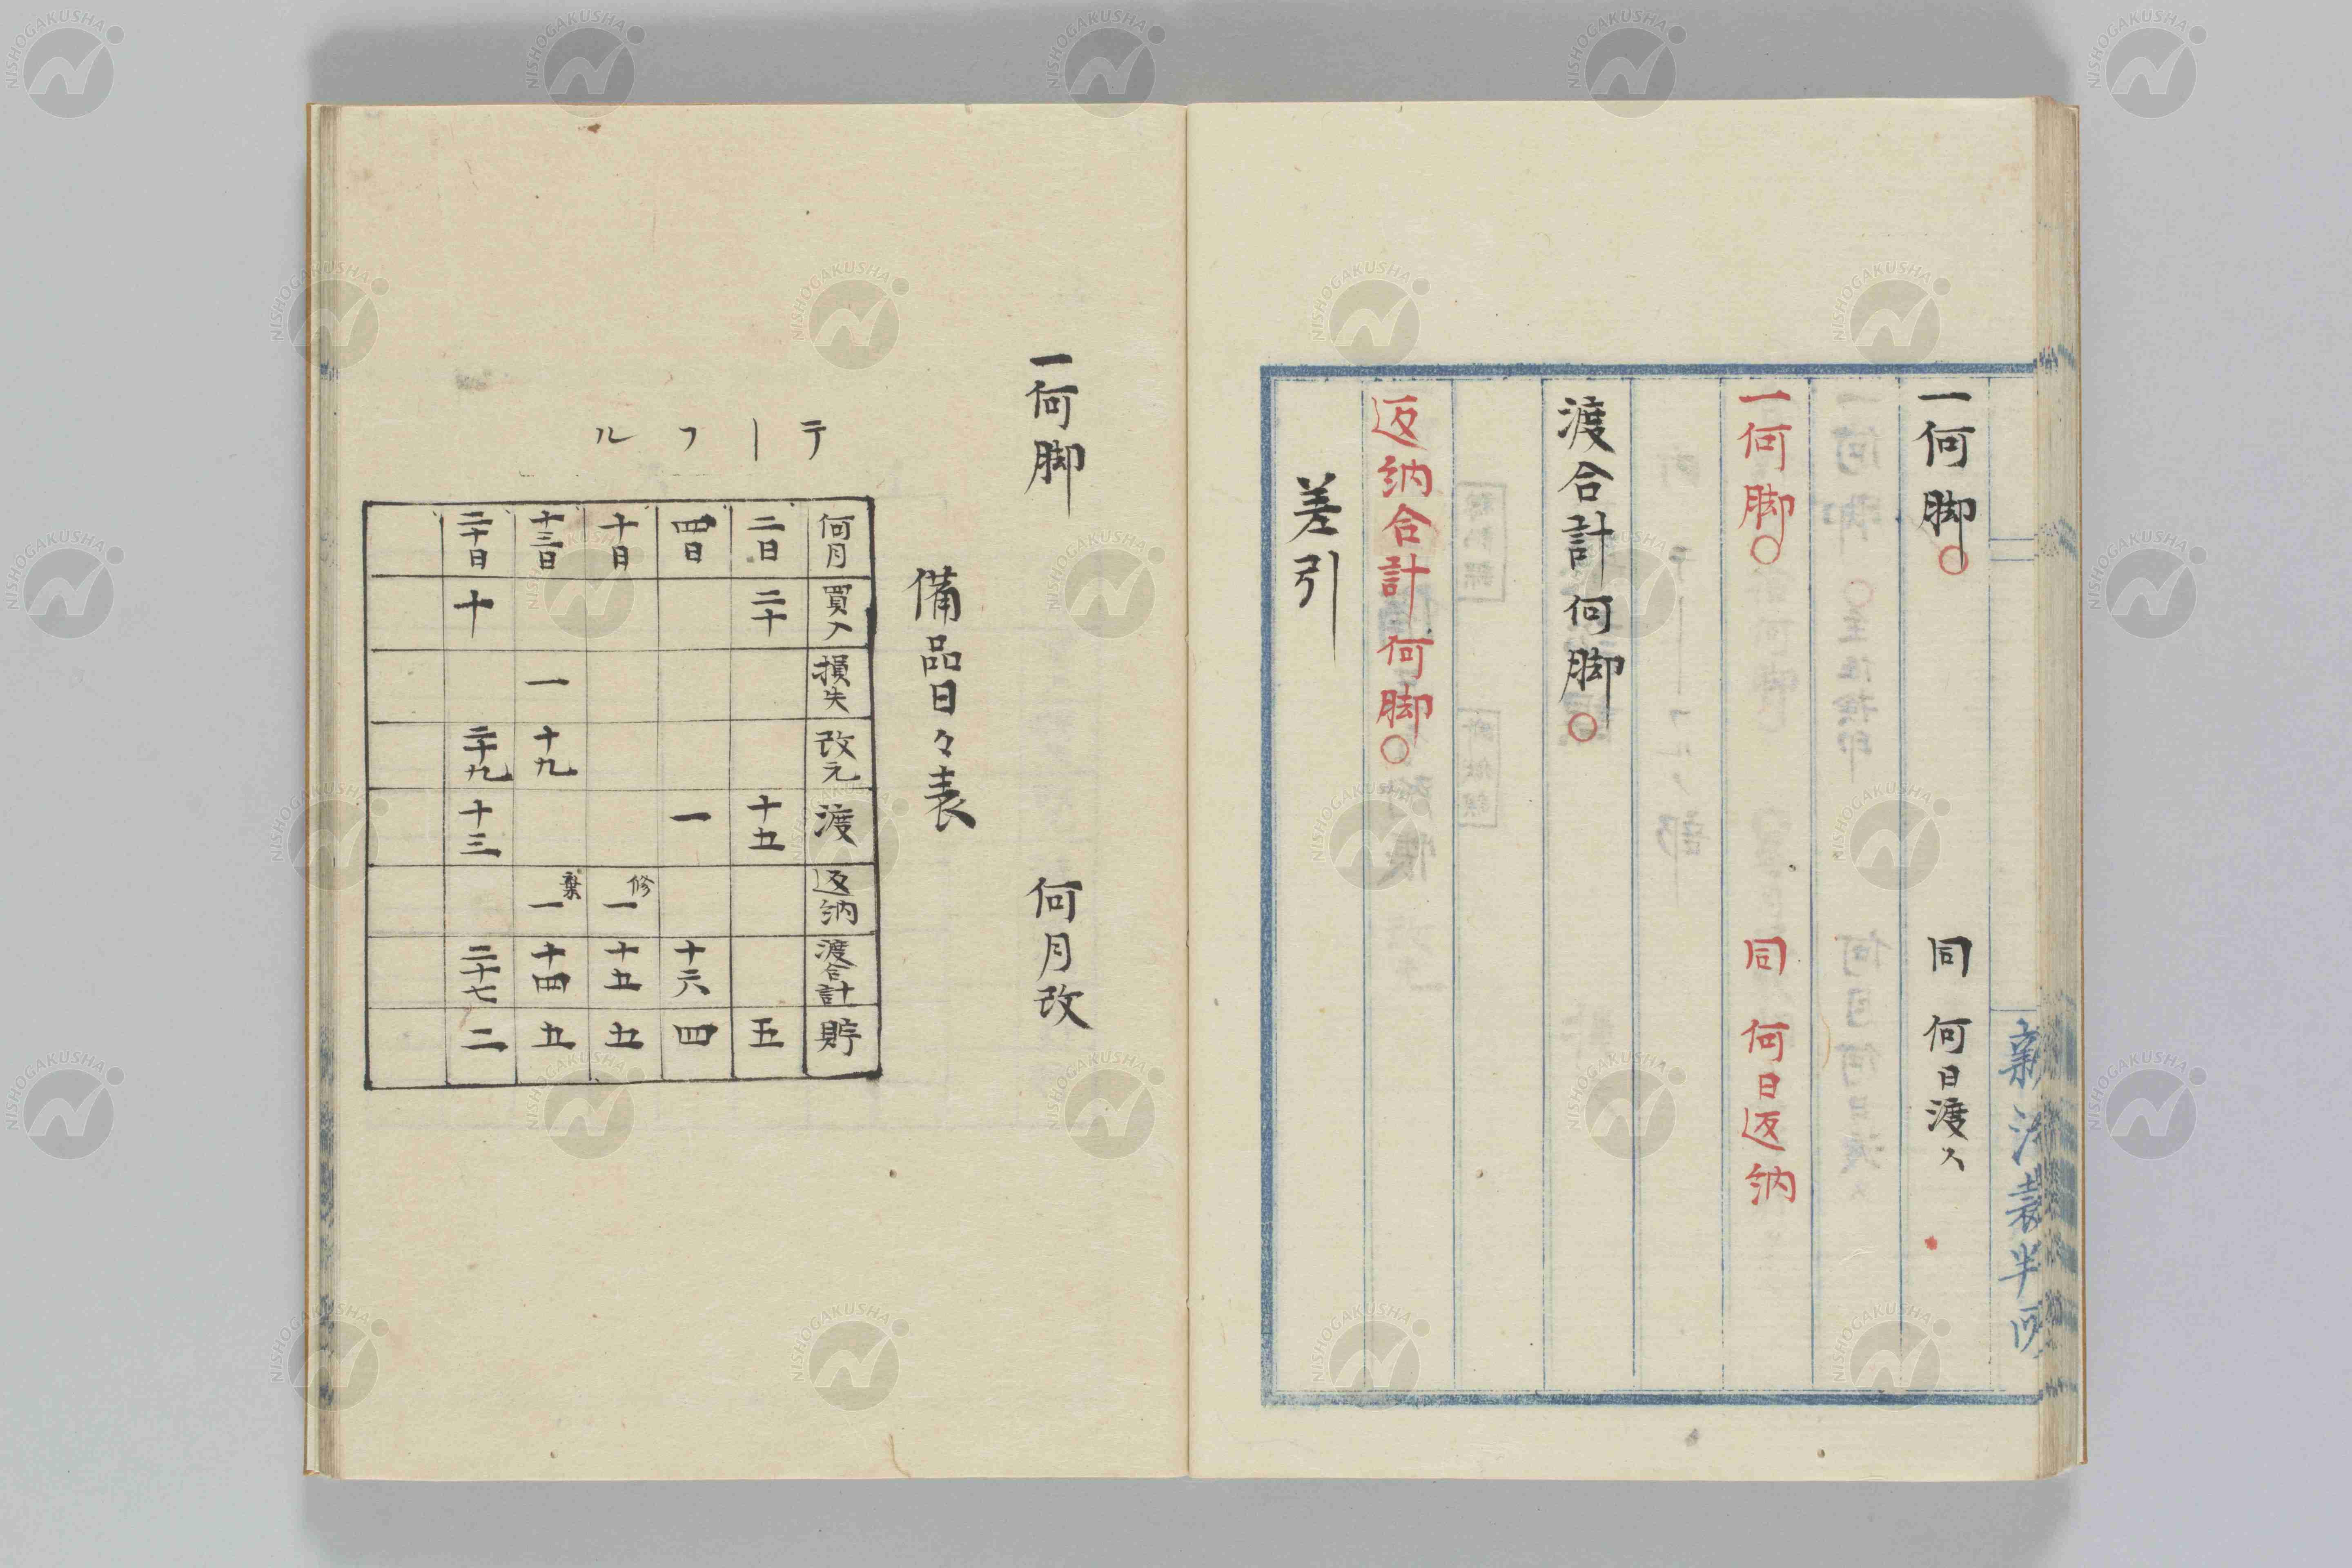 新治裁判所
一何脚○ 同 何日渡ス
一何脚○ 同 何日返納
渡合計何脚○
返納合計何脚○
差引
一何脚 何月改
備品日々表
テーフル
何月 買入 損失 改元 渡 返納 渡合計 貯
二日 二十 十五 五
四日 一 十六 四
十日 修一 十五 五
十三日 一 十九 棄一 十四 五
二十日 十 二十九 十三 二十七 二
NISHOGAKUSHA